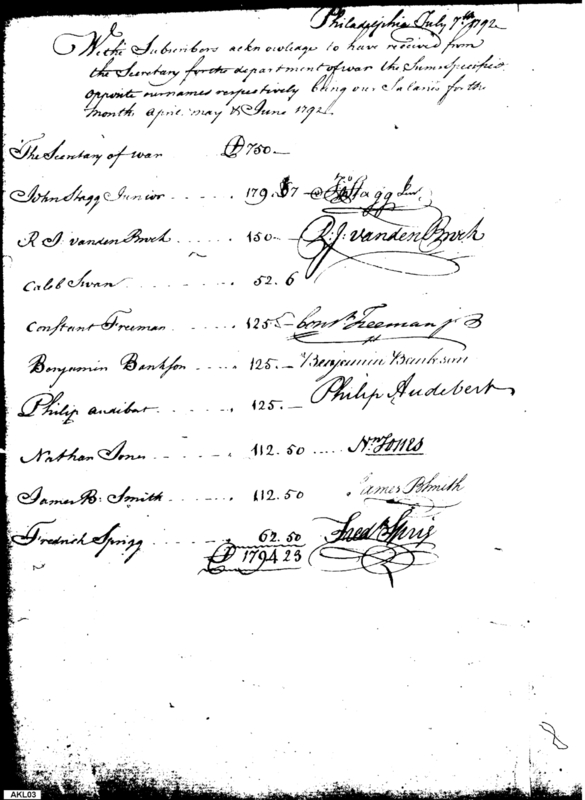 Philadelphia July 7th 1792
We the Subscribers acknowledge to have received from
the Secretary for the department of war the Sums Specified
opposite our names respectively being our Salaries for the
months april may & June 1792.
The Secretary of war $ 750 —
John Stagg Junior 179. 17 Jno Stagg Jun.
R J. vanden Broek 150 — R: J: vanden Broek
Caleb Swan 52. 6
Constant Freeman 125 — Const Freeman jr
Benjamin Bankson 125. — Benjamin Bankson
Philip audibat 125. — Philip Audebert
Nathan Jones 112. 50 Nn Jones
James B. Smith 112. 50 James B Smith
Fredrich Sprigg 62. 50 Fredk Sprig
$ 1794 23
AKL03